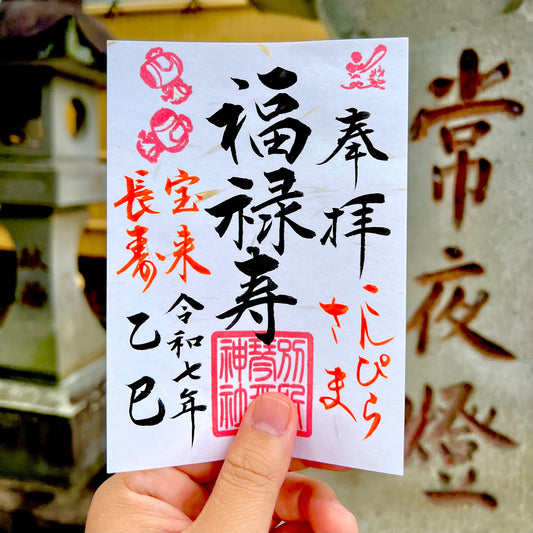 奉拝
こんぴら
さま
福禄寿
宝来
長寿
令和七年
乙巳
常夜燈